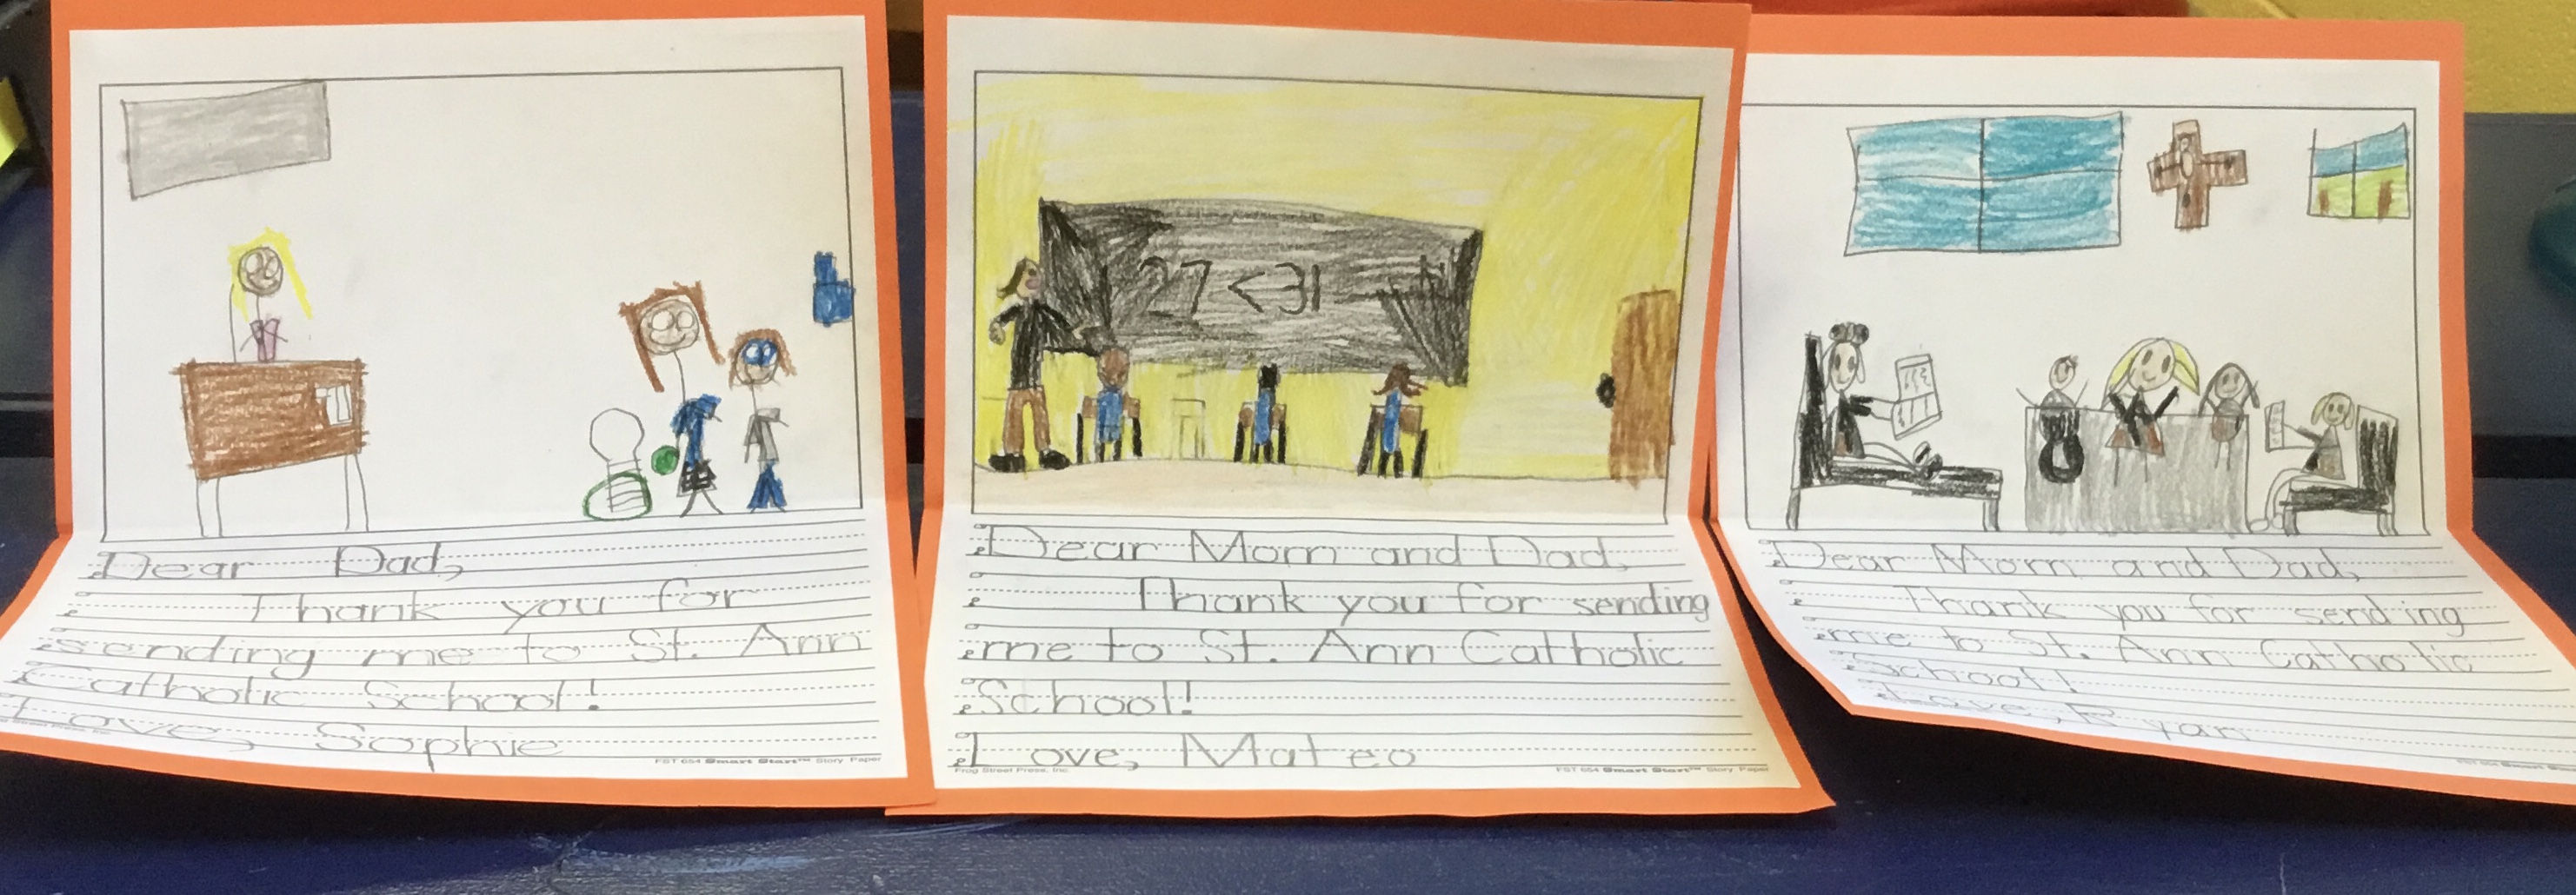 Dear Dad,
Thank you for
sending me to St. Ann
Catholic School!
Love, Sophie
FST 654 Smart Start™ Story Paper
27 < 31
Dear Mom and Dad,
Thank you for sending
me to St. Ann Catholic
School!
Love, Mateo
Frog Street Press, Inc.
FST 654 Smart Start™ Story Paper
Dear Mom and Dad,
Thank you for sending
me to St. Ann Catholic
School!
Love, Ryan
FST 654 Smart